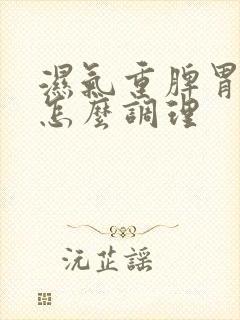 濕氣重脾胃
怎麼調理
沅芷謠